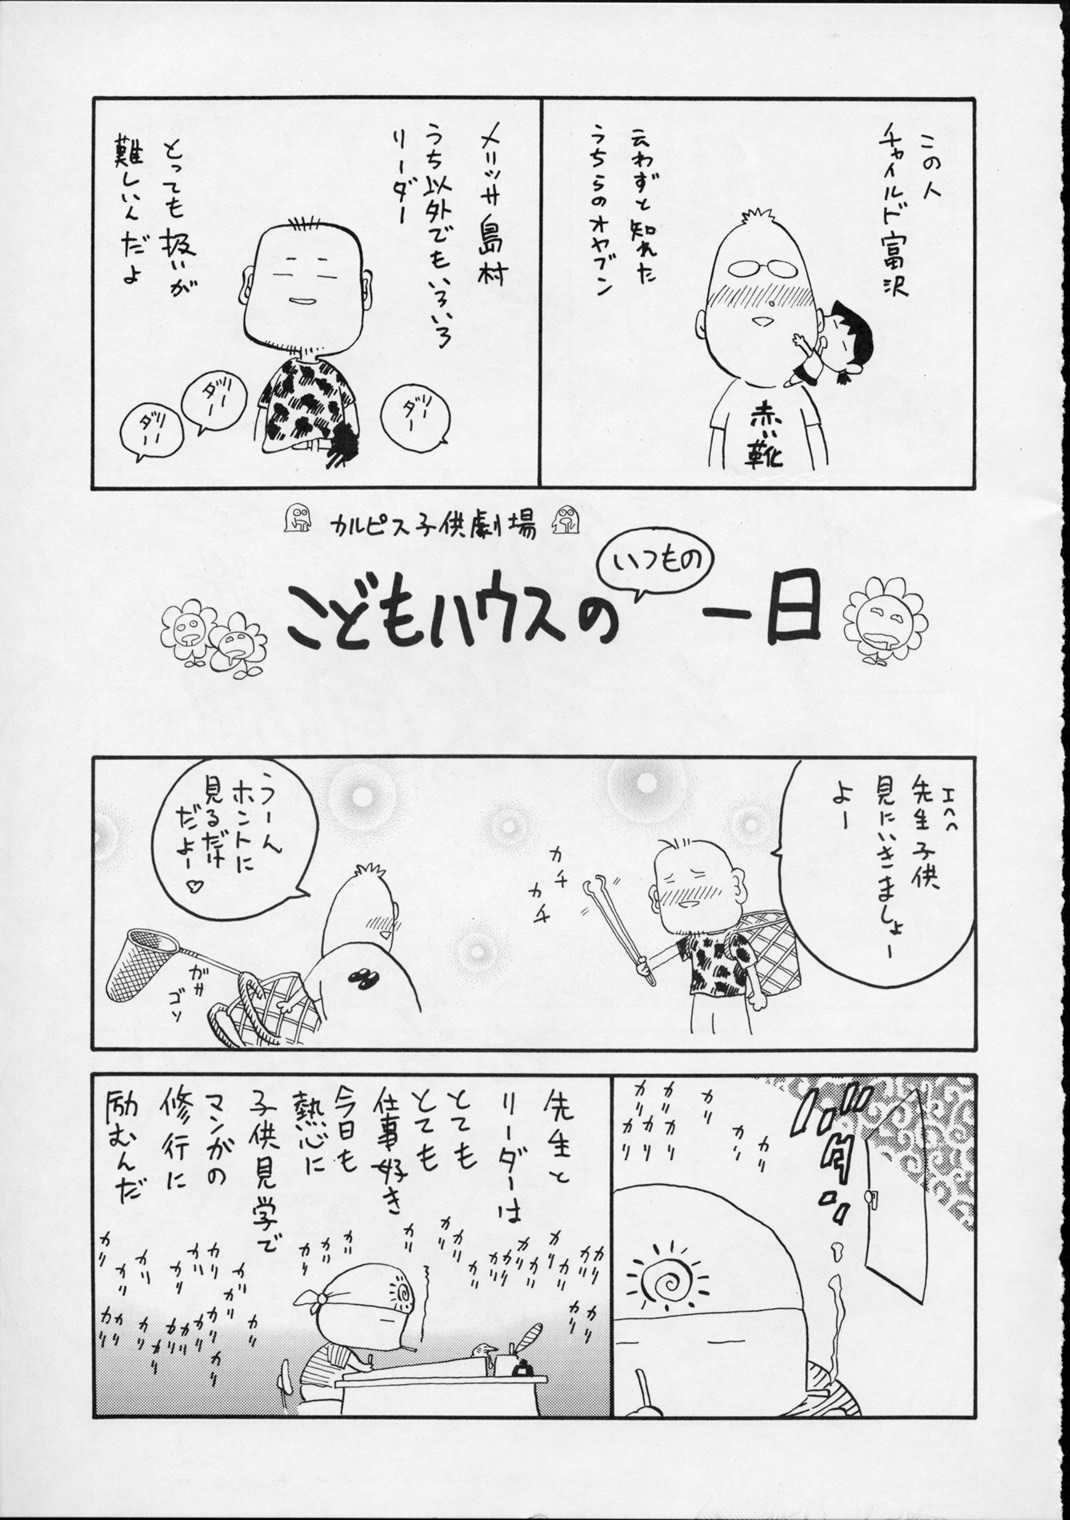 この人
チャイルド富沢
云わずと知れた
うちらのオヤブン
赤い靴
メリッサ島村
うち以外でもいろいろ
リーダー
とっても扱いが
難しいんだよ
リーダー
リーダー
リーダー
カルピス子供劇場
こどもハウスの
いつもの
一日
エヘヘ
先生子供
見にいきましょー
よー
カチ
カチ
うーん
ホントに
見るだけ
だよー♡
ガサ
ゴソ
バタン
カリ
カリ
カリ
カリ
カリ
カリ
カリ
カリ
カリ
先生と
リーダーは
とても
とても
仕事好き
今日も
熱心に
子供見学で
マンガの
修行に
励むんだ
カリ
カリ
カリ
カリ
カリ
カリ
カリ
カリ
カリ
カリ
カリ
カリ
カリ
カリ
カリ
カリ
カリ
カリ
カリ
カリ
カリ
カリ
カリ
カリ
カリ
カリ
カリ
カリ